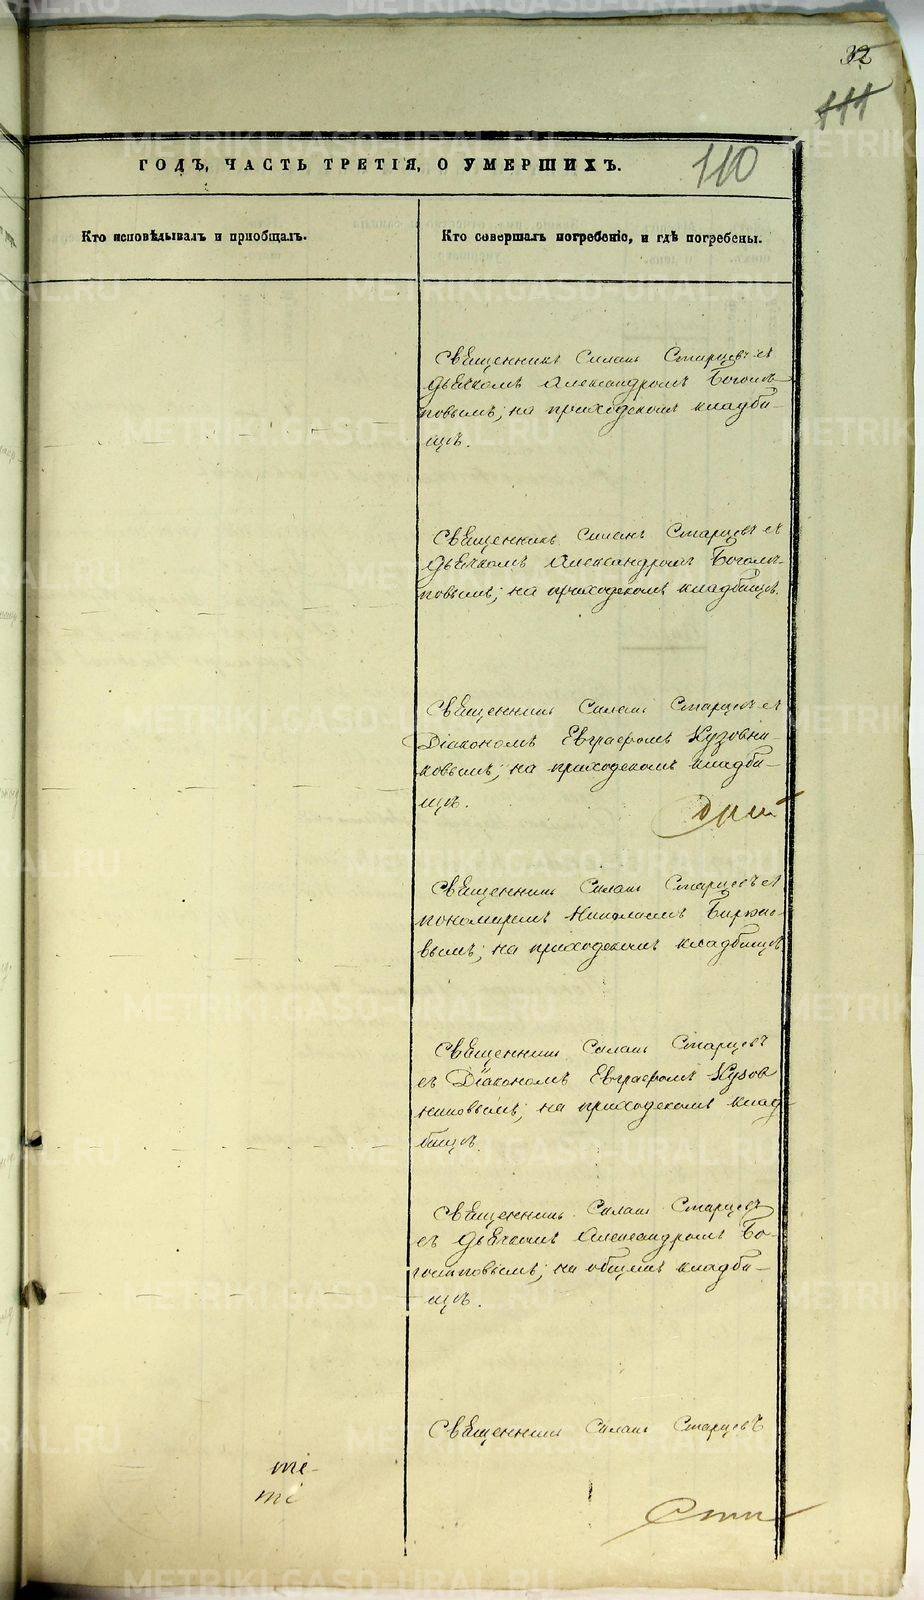 32
111
110
ГОДЪ, ЧАСТЬ ТРЕТІЯ, О УМЕРШИХЪ.
Кто исповѣдывалъ и пріобщалъ.
Кто совершалъ погребеніе, и гдѣ погребены.
Священникъ Силашъ Старцевъ съ
Дьячкомъ Александромъ Боголѣ-
повымъ; на приходскомъ кладби-
щѣ.
Священникъ Старцевъ съ
Дьячкомъ Александромъ Боголѣ-
повымъ; на приходскомъ кладбищѣ.
Священникъ Старцевъ съ
Діакономъ Евграфомъ Кузовни-
ковымъ; на приходскомъ кладби-
щѣ.
Священникъ Старцевъ съ
пономаремъ Николаемъ
вымъ; на приходскомъ кладбищѣ
Священникъ Старцевъ
съ Діакономъ Евграфомъ Кузов
никовымъ; на приходскомъ клад-
бищѣ.
Священникъ Старцевъ
съ Дьячкомъ Александромъ Бо-
голѣповымъ; на общемъ кладби-
щѣ.
Священникъ Старцевъ
METRIKI.GASO-URAL.RU